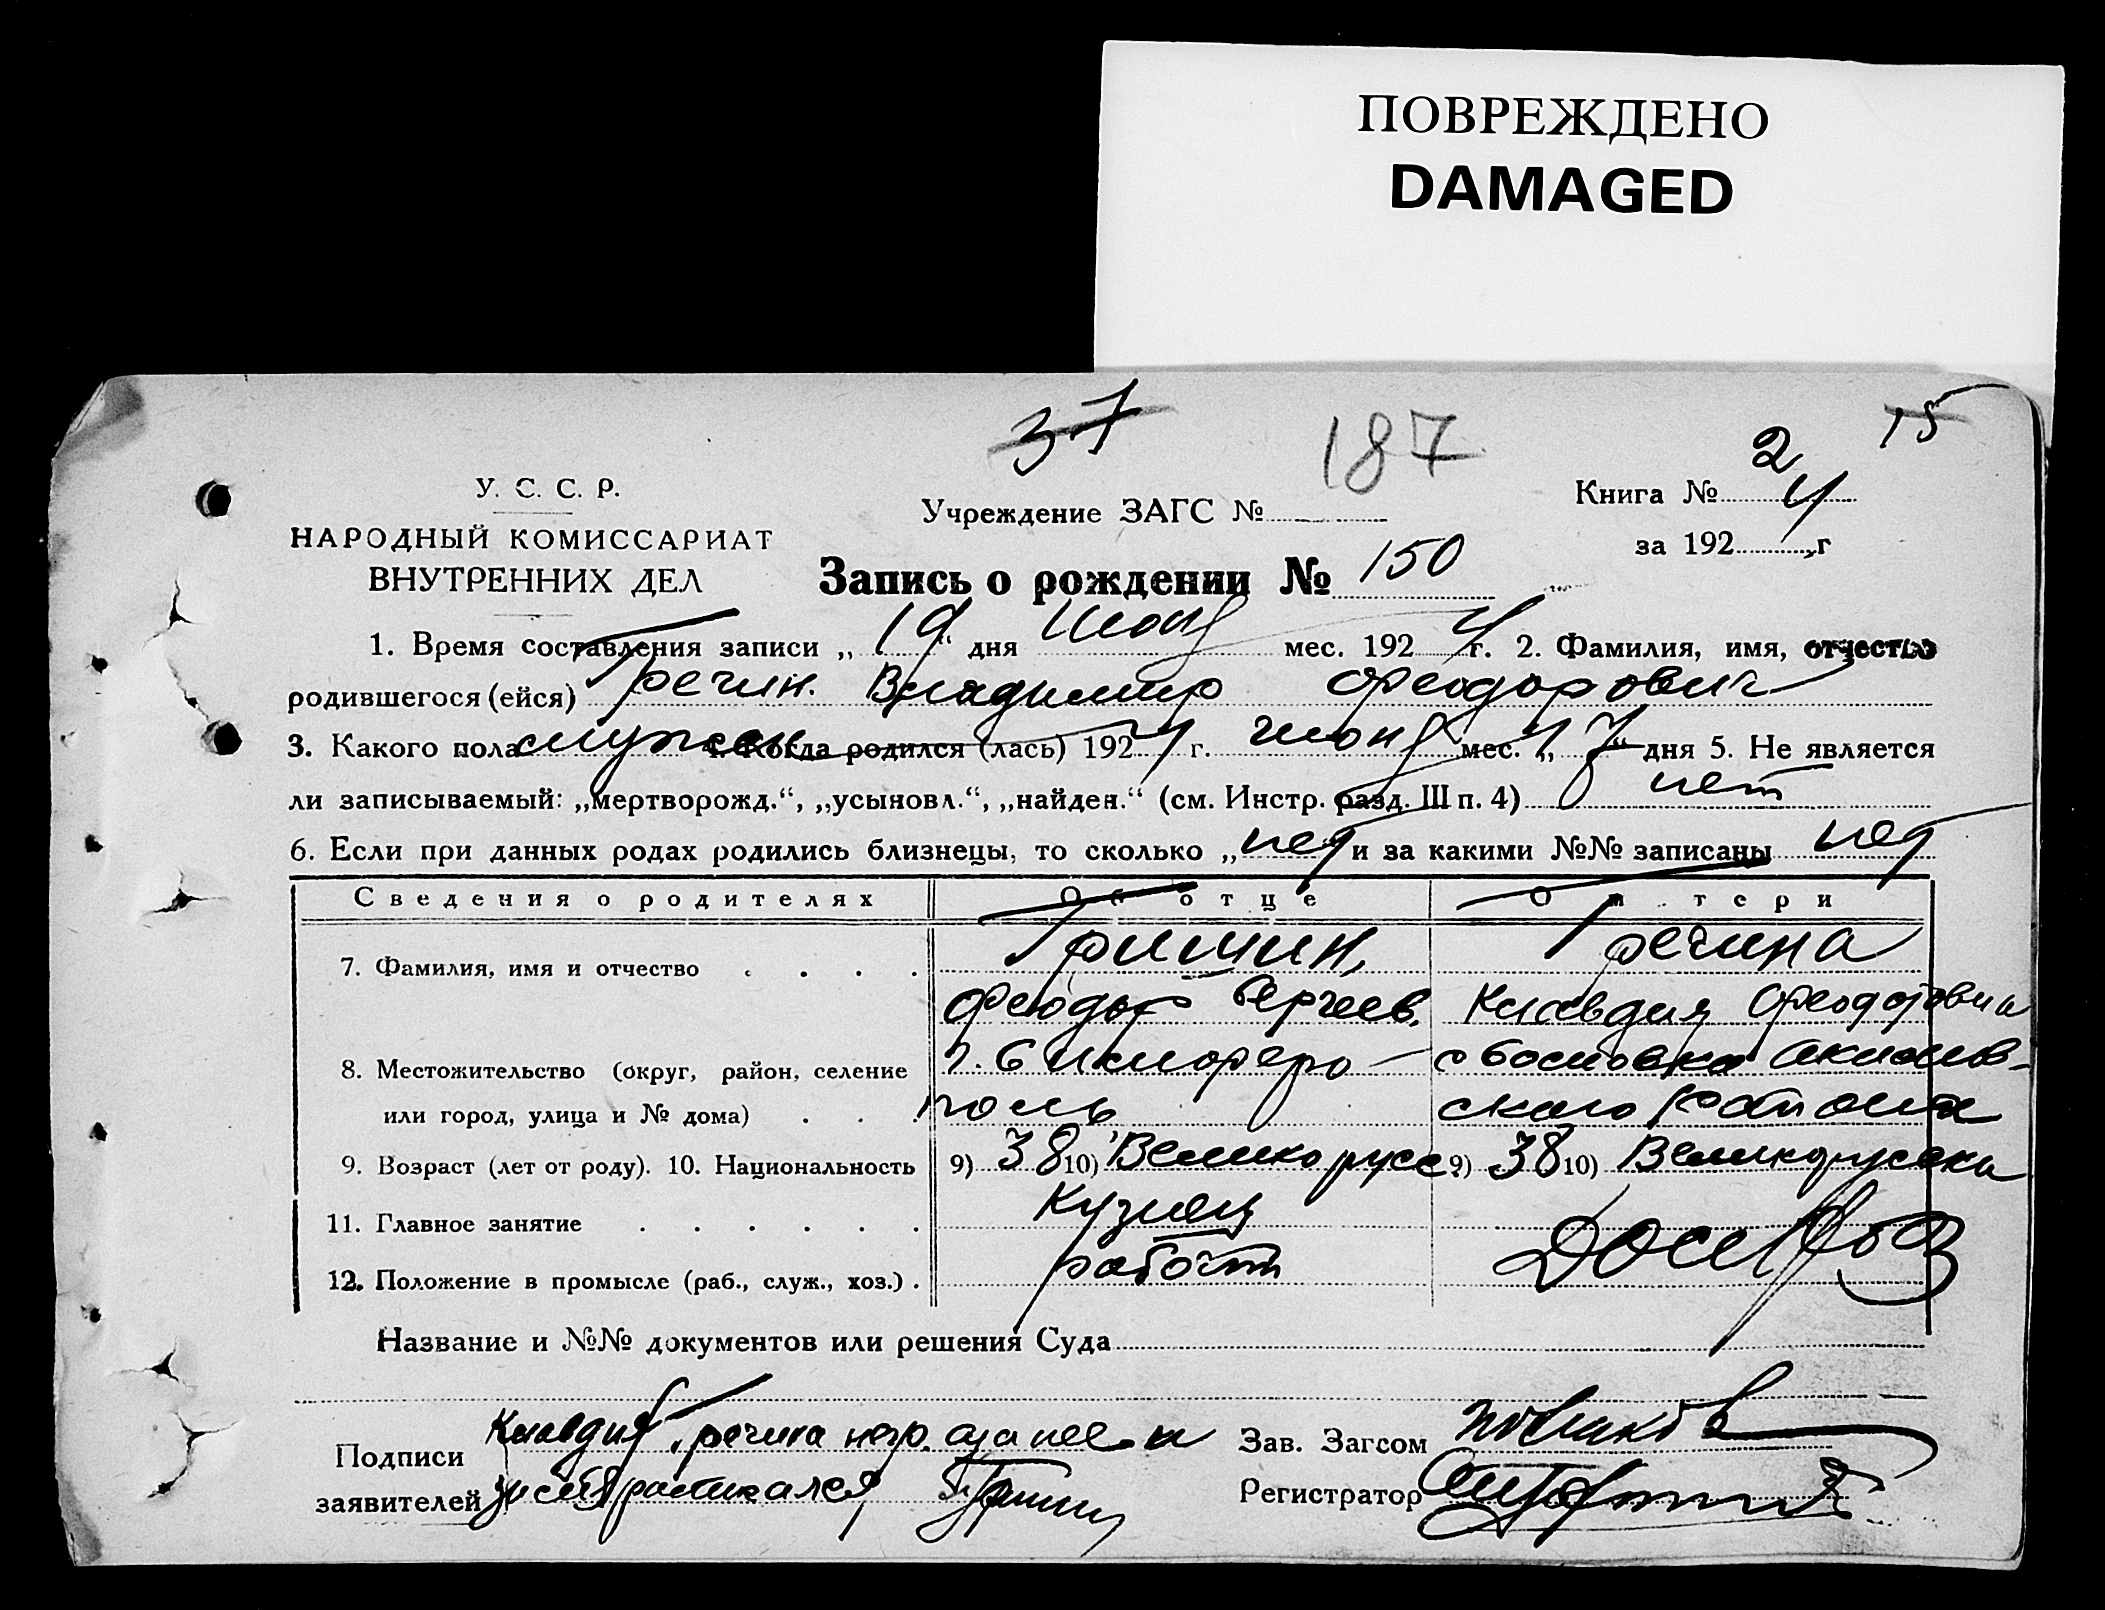 ПОВРЕЖДЕНО
DAMAGED
37 187 15
У. С. С. Р.
НАРОДНЫЙ КОМИССАРИАТ
ВНУТРЕННИХ ДЕЛ
Учреждение ЗАГС №
Книга № 2
за 1924 г
Запись о рождении № 150
1. Время составления записи „19“ дня Июня мес. 1924 г. 2. Фамилия, имя, отчество
родившегося (ейся) Гречин. Владимир Феодорович
3. Какого пола мужск 4. Когда родился (лась) 1924 г. июня мес. „17“ дня 5. Не является
ли записываемый: „мертворожд.“, „усыновл.“, „найден.“ (см. Инстр. разд. III п. 4) нет
6. Если при данных родах родились близнецы, то сколько „нет и за какими №№ записаны нет
Сведения о родителях Об отце О м тери
7. Фамилия, имя и отчество Гришин, Гречина
Феодор Сергеев. Клавдия Феодоровна
8. Местожительство (округ, район, селение г. Симферо- с
или город, улица и № дома) поль ского района
9. Возраст (лет от роду). 10. Национальность 9) 38 10) Великорусс 9) 38 10) Великорусска
11. Главное занятие Кузнец
12. Положение в промысле (раб., служ., хоз.) рабочий
Название и №№ документов или решения Суда
Подписи Клавдия Гречина негр. а за нее и
заявителей за себя расписался Гришин
Зав. Загсом
Регистратор